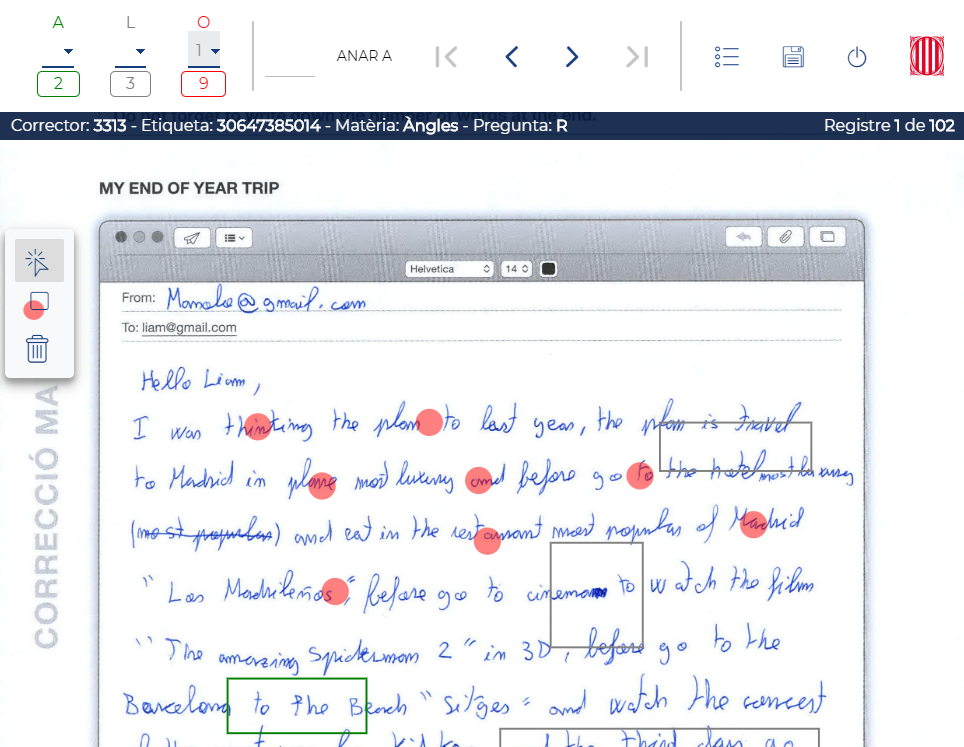 A L O
1
2 3 9
ANAR A
Do not forget to write down the number of words at the end.
Corrector: 3313 - Etiqueta: 30647385014 - Matèria: Angles - Pregunta: R
Registre 1 de 102
MY END OF YEAR TRIP
Helvetica 14
From: Manolo@gmail.com
To: liam@gmail.com
CORRECCIÓ MA
Hello Liam,
I was thinking the plan to last year, the plan is travel
to Madrid in plane most luxury and before go to the hotel most luxury
(most popular) and eat in the restaurant most popular of Madrid
"Los Madrileños", before go to cinema to watch the film
"The amazing Spiderman 2" in 3D, before go to the
Barcelona to the Beach "Sitges" and watch the concert
and the third day go